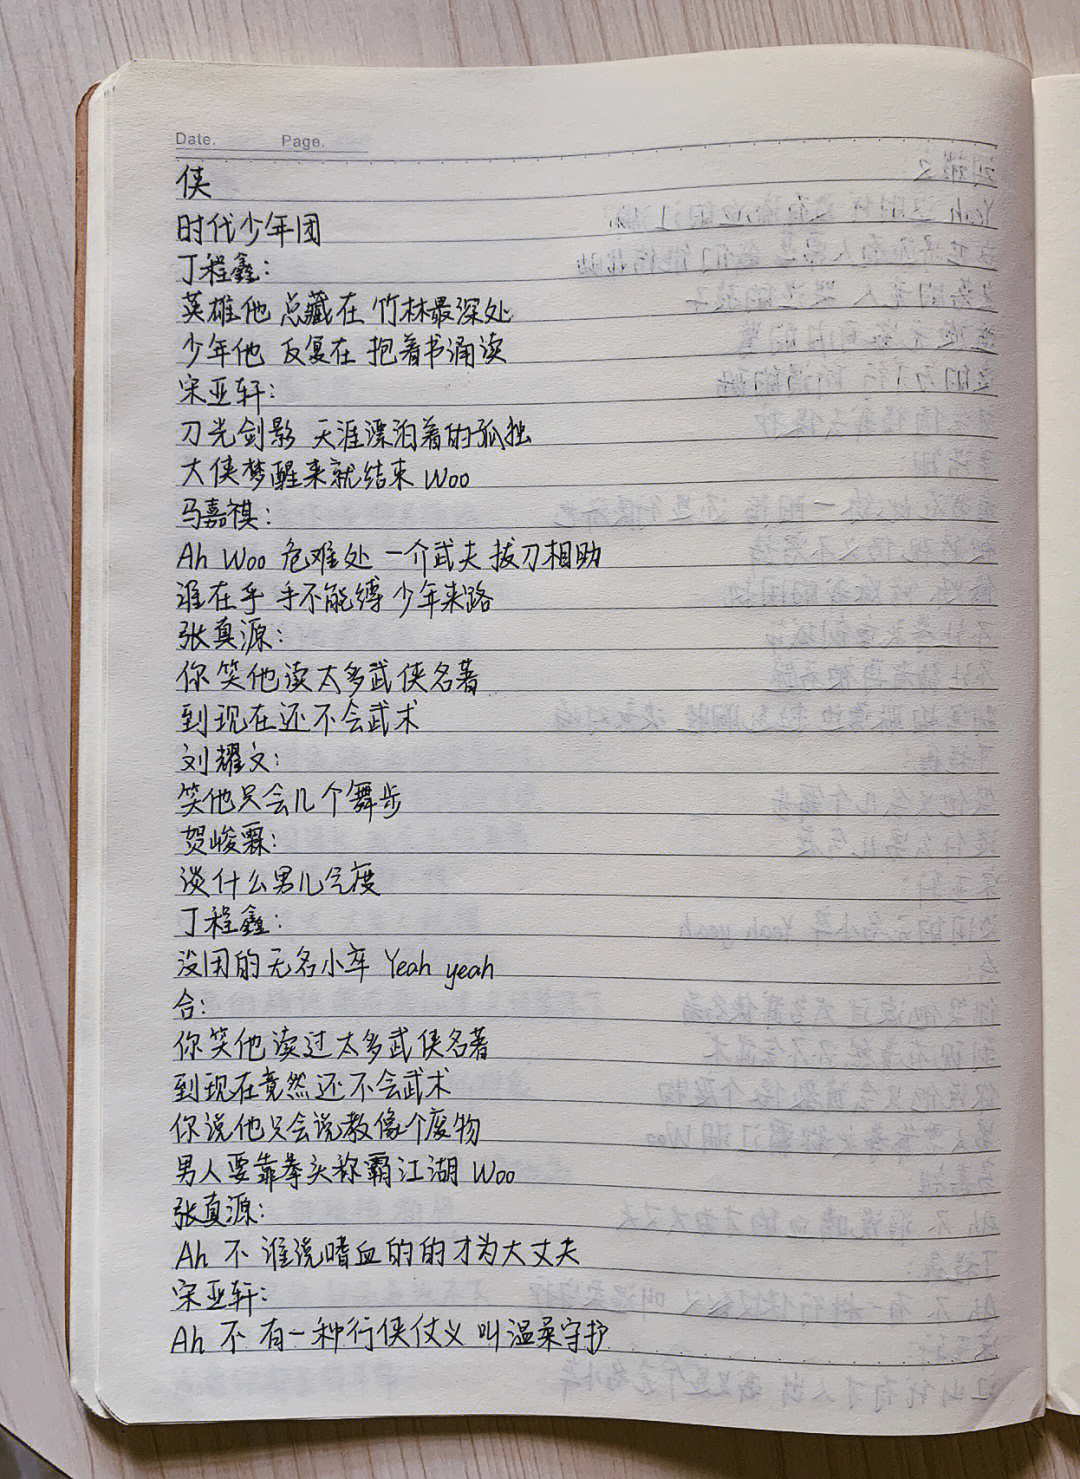 Date. Page.
侠
时代少年团
丁程鑫:
英雄他 总藏在 竹林最深处
少年他 反复在 抱着书涌读
宋亚轩:
刀光剑影 天涯漂泊着的孤独
大侠梦醒来就结束 Woo
马嘉祺:
Ah Woo 危难处 一介武夫 拔刀相助
谁在乎 手不能缚 少年来路
张真源:
你笑他读太多武侠名著
到现在还不会武术
刘耀文:
笑他只会几个舞步
贺峻霖:
谈什么男儿气度
丁程鑫:
没用的无名小卒 Yeah yeah
合:
你笑他读过太多武侠名著
到现在竟然还不会武术
你说他只会说教像个废物
男人要靠拳头称霸江湖 Woo
张真源:
Ah 不 谁说嗜血的的才为大丈夫
宋亚轩:
Ah 不 有一种行侠仗义 叫温柔守护